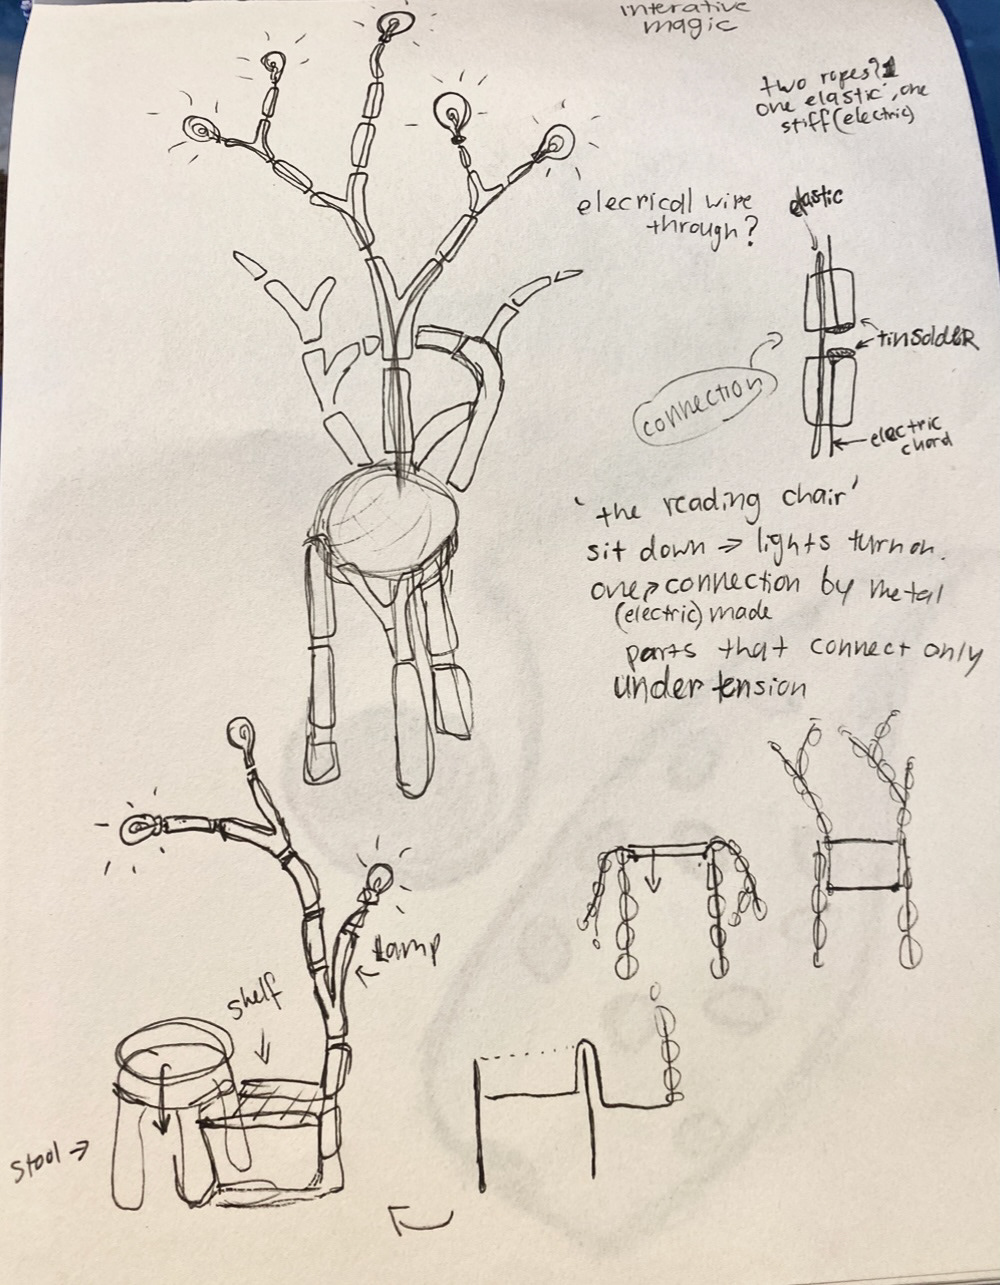 interative
magic
two ropes?
one elastic, one
stiff (electric)
elecricall wire
through?
elastic
tinsolder
connection
electric
chord
'the reading chair'
sit down → lights turn on.
one → connection by metal
(electric) made
parts that connect only
under tension
lamp
shelf
stool →